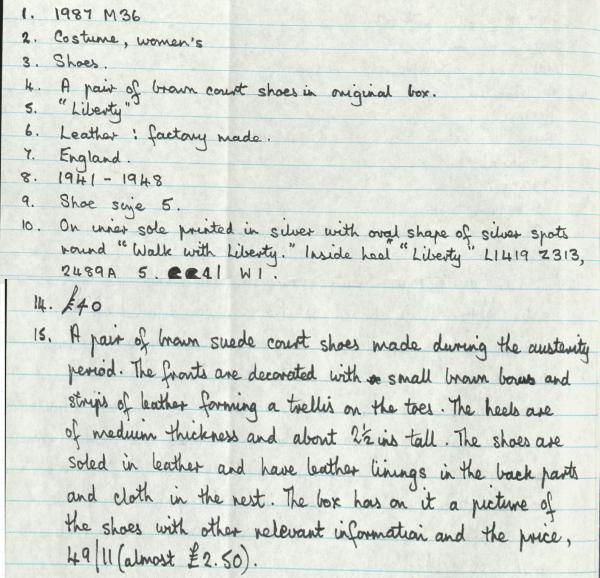 1. 1987 M36
2. Costume, women's
3. Shoes.
4. A pair of brown court shoes in original box.
5. "Liberty"
6. Leather : factory made.
7. England.
8. 1941 - 1948
9. Shoe size 5.
10. On inner sole printed in silver with oval shape of silver spots
round "Walk with Liberty." Inside heel "Liberty" L1419 2313,
2489A 5. 41 W1.
14. £40
15. A pair of brown suede court shoes made during the austerity
period. The fronts are decorated with small brown bows and
strips of leather forming a trellis on the toes. The heels are
of medium thickness and about 2½ ins tall. The shoes are
soled in leather and have leather linings in the back parts
and cloth in the rest. The box has on it a picture of
the shoes with other relevant information and the price,
49/11 (almost £2.50).